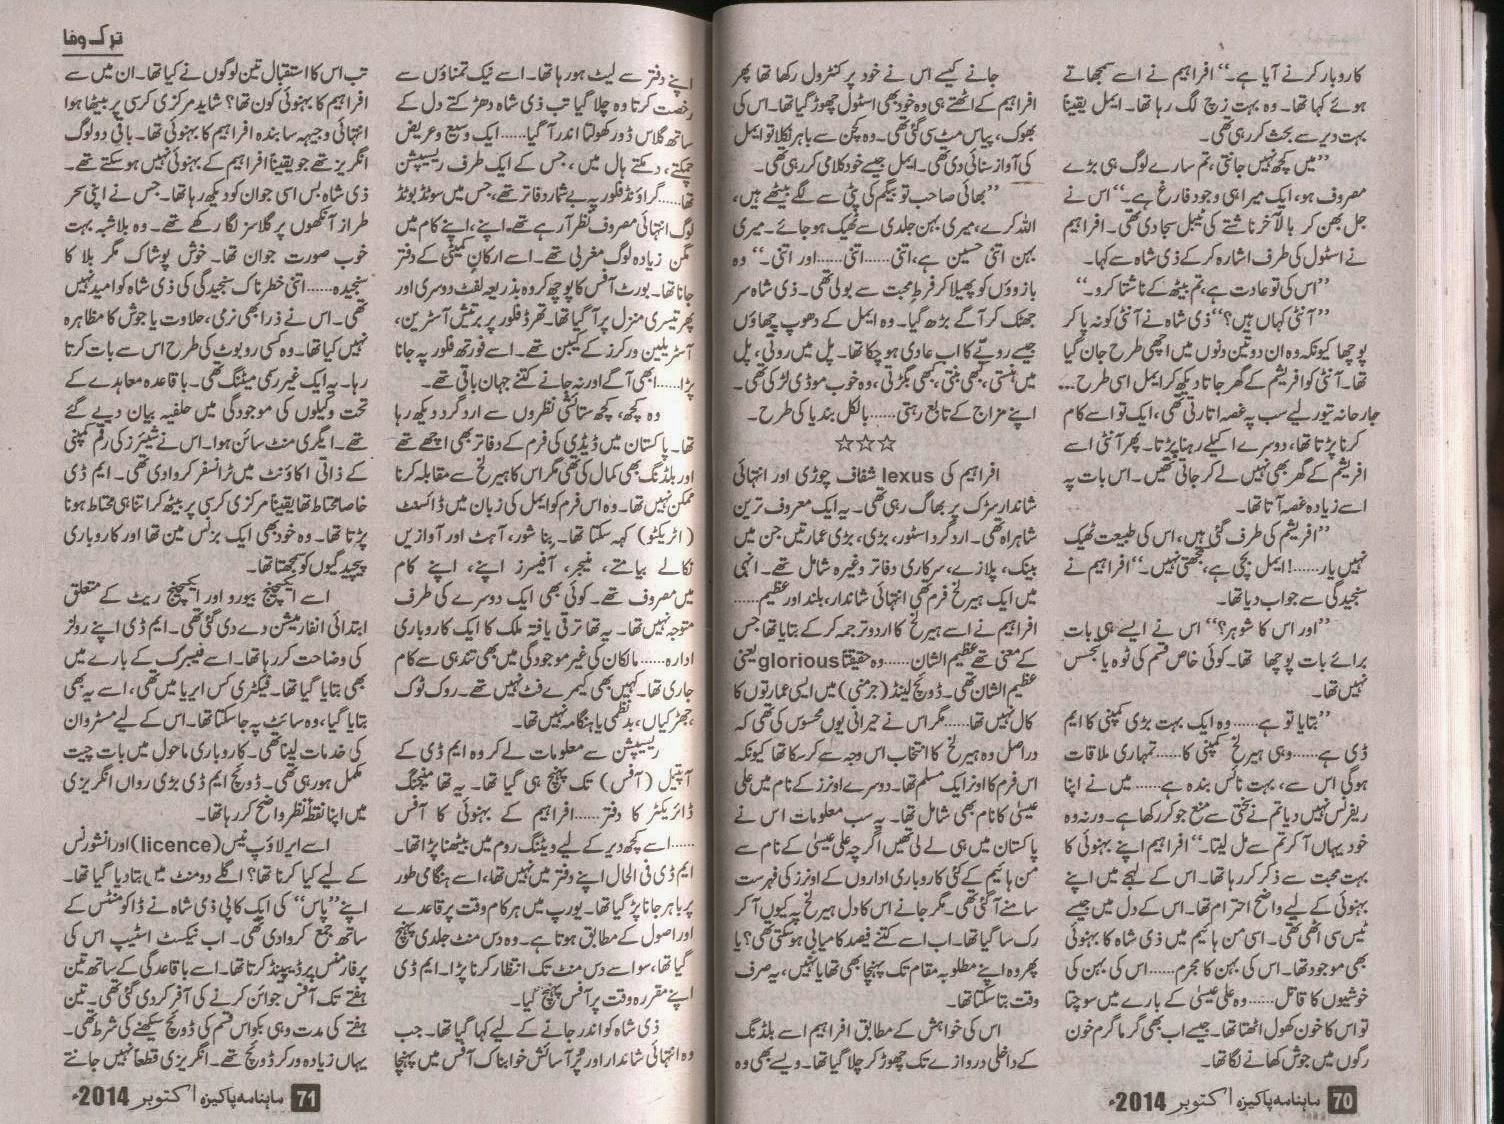 کاروبار کرنے آیا ہے۔“ افراہیم نے اسے سمجھاتے
ہوئے کہا تھا۔ وہ بہت زچ لگ رہا تھا۔ ایمل یقیناً
بہت دیر سے بحث کر رہی تھی۔
”میں کچھ نہیں جانتی، تم سارے لوگ ہی بڑے
مصروف ہو، ایک میرا ہی وجود فارغ ہے۔“ اس نے
جل بھن کر بالآخر ناشتے کی ٹیبل سجا دی تھی۔ افراہیم
نے اسٹول کی طرف اشارہ کر کے ذی شاہ سے کہا۔
”اس کی تو عادت ہے، تم بیٹھ کے ناشتا کرو۔“
”آنٹی کہاں ہیں؟“ ذی شاہ نے آنٹی کو نہ پا کر
پوچھا کیونکہ وہ ان دو تین دنوں میں اچھی طرح جان گیا
تھا۔ آنٹی کو افریشم کے گھر جاتا دیکھ کر ایمل اسی طرح...
جارحانہ تیور لیے سب پہ غصہ اتارتی تھی، ایک تو اسے کام
کرنا پڑتا تھا، دوسرے اکیلے رہنا پڑتا۔ پھر آنٹی اسے
افریشم کے گھر بھی نہیں لے کر جاتی تھیں۔ اس بات پہ
اسے زیادہ غصہ آتا تھا۔
”افریشم کی طرف گئی ہیں، اس کی طبیعت ٹھیک
نہیں یار......! ایمل بچی ہے، سمجھتی نہیں۔“ افراہیم نے
سنجیدگی سے جواب دیا تھا۔
”اور اس کا شوہر؟“ اس نے ایسے ہی بات
برائے بات پوچھا تھا۔ کوئی خاص قسم کی ٹوہ یا تجسس
نہیں تھا۔
”بتایا تو ہے...... وہ ایک بہت بڑی کمپنی کا ایم
ڈی ہے...... وہی ہیرلخ کمپنی کا...... تمہاری ملاقات
ہو گی اس سے، بہت نائس بندہ ہے...... میں نے اپنا
ریفرنس نہیں دیا تم نے سختی سے منع جو کر رکھا ہے۔ ورنہ وہ
خود یہاں آ کر تم سے مل لیتا۔“ افراہیم اپنے بہنوئی کا
بہت محبت سے ذکر کر رہا تھا۔ اس کے لہجے میں اپنے
بہنوئی کے لیے واضح احترام تھا۔ اس کے دل میں جیسے
ٹیس سی اٹھی تھی۔ اسی من ہائیم میں ذی شاہ کا بہنوئی
بھی موجود تھا۔ اس کی بہن کا مجرم...... اس کی بہن کی
خوشیوں کا قاتل...... وہ علی عیسیٰ کے بارے میں سوچتا
تو اس کا خون کھول اٹھتا تھا۔ جیسے اب بھی گرما گرم خون
رگوں میں جوش کھانے لگا تھا۔
جانے کیسے اس نے خود پر کنٹرول رکھا تھا پھر
افراہیم کے اٹھتے ہی وہ خود بھی اسٹول چھوڑ گیا تھا۔ اس کی
بھوک، پیاس مٹ سی گئی تھی۔ وہ کچن سے باہر نکلا تو ایمل
کی آواز سنائی دی تھی۔ ایمل جیسے خود کلامی کر رہی تھی۔
”بھائی صاحب تو بیگم کی پٹی سے لگے بیٹھے ہیں،
اللہ کرے، میری بہن جلدی سے ٹھیک ہو جائے۔ میری
بہن اتنی حسین ہے، اتنی...... اتنی...... اور اتنی۔“ وہ
بازوؤں کو پھیلا کر فرطِ محبت سے بولی تھی۔ ذی شاہ سر
جھٹک کر آگے بڑھ گیا۔ وہ ایمل کے دھوپ چھاؤں
جیسے رویّے کا اب عادی ہو چکا تھا۔ پل میں روتی، پل
میں ہنستی، کبھی بنتی، کبھی بگڑتی، وہ خوب موڈی لڑکی تھی۔
اپنے مزاج کے تابع رہتی...... بالکل بندیا کی طرح۔
☆☆☆
افراہیم کی lexus شفاف چوڑی اور انتہائی
شاندار سڑک پر بھاگ رہی تھی۔ یہ ایک معروف ترین
شاہراہ تھی۔ ارد گرد اسٹور، بڑی، بڑی عمارتیں جن میں
بینک، پلازے، سرکاری دفاتر وغیرہ شامل تھے۔ انہی
میں ایک ہیرلخ فرم تھی انتہائی شاندار، بلند اور عظیم......
افراہیم نے اسے ہیرلخ کا اردو ترجمہ کر کے بتایا تھا جس
کے معنی تھے عظیم الشان...... وہ حقیقتاً glorious یعنی
عظیم الشان تھی۔ ڈوئچ لینڈ (جرمنی) میں ایسی عمارتوں کا
کال نہیں تھا...... مگر اس نے حیرانی یوں محسوس کی تھی کہ
دراصل وہ ہیرلخ کا انتخاب اس وجہ سے کر سکا تھا کیونکہ
اس فرم کا اونر ایک مسلم تھا۔ دوسرے اونرز کے نام میں علی
عیسیٰ کا نام بھی شامل تھا۔ یہ سب معلومات اس نے
پاکستان میں ہی لے لی تھیں اگرچہ علی عیسیٰ کے نام سے
من ہائیم کے کئی کاروباری اداروں کے اونرز کی فہرست
سامنے آ گئی تھی۔ مگر جانے اس کا دل ہیرلخ پہ کیوں آ کر
رک سا گیا تھا۔ اب اسے کتنے فیصد کامیابی ہو سکتی تھی؟ یا
پھر وہ اپنے مطلوبہ مقام تک پہنچا بھی تھا یا نہیں، یہ صرف
وقت بتا سکتا تھا۔
اس کی خواہش کے مطابق افراہیم اسے بلڈنگ
کے داخلی دروازے تک چھوڑ کر چلا گیا تھا۔ ویسے بھی وہ
70 ماہنامہ پاکیزہ اکتوبر 2014ء
ترک وفا
اپنے دفتر سے لیٹ ہو رہا تھا۔ اسے نیک تمناؤں سے
رخصت کرتا وہ چلا گیا تب ذی شاہ دھڑکتے دل کے
ساتھ گلاس ڈور کھولتا اندر آ گیا...... ایک وسیع و عریض
چمکتے، دمکتے ہال میں، جس کے ایک طرف ریسیپشن
تھا...... گراؤنڈ فلور پہ بے شمار دفاتر تھے، جس میں سوٹڈ بوٹڈ
لوگ انتہائی مصروف نظر آ رہے تھے۔ اپنے، اپنے کام میں
مگن زیادہ لوگ مغربی تھے۔ اسے ارکانِ کمیٹی کے دفتر
جانا تھا۔ بورٹ آفس کا پوچھ کر وہ بذریعہ لفٹ دوسری اور
پھر تیسری منزل پر آ گیا تھا۔ تھرڈ فلور پر برٹش آسٹرین،
آسٹریلین ورکرز کے کیبن تھے۔ اسے فورتھ فلور پہ جانا
پڑا...... ابھی آگے اور نہ جانے کتنے جہان باقی تھے۔
وہ کچھ، کچھ ستائشی نظروں سے ارد گرد دیکھ رہا
تھا۔ پاکستان میں ڈیڈی کی فرم کے دفاتر بھی اچھے تھے
اور بلڈنگ بھی کمال کی تھی مگر اس کا ہیرلخ سے مقابلہ کرنا
ممکن نہیں تھا۔ وہ اس فرم کو ایمل کی زبان میں ڈائسنٹ
(اٹریکٹو) کہہ سکتا تھا۔ بنا شور، آہٹ اور آوازیں
نکالے بیامتے، منیجر، آفیسرز اپنے، اپنے کام
میں مصروف تھے۔ کوئی بھی ایک دوسرے کی طرف
متوجہ نہیں تھا۔ یہ تھا ترقی یافتہ ملک کا ایک کاروباری
ادارہ...... مالکان کی غیر موجودگی میں بھی تندہی سے کام
جاری تھا۔ کہیں بھی کیمرے فٹ نہیں تھے۔ روک ٹوک
، جھڑکیاں، بدنظمی یا ہنگامہ نہیں تھا۔
ریسیپشن سے معلومات لے کر وہ ایم ڈی کے
آپٹیل (آفس) تک پہنچ ہی گیا تھا۔ یہ تھا منیجنگ
ڈائریکٹر کا دفتر...... افراہیم کے بہنوئی کا آفس
...... اسے کچھ دیر کے لیے ویٹنگ روم میں بیٹھنا پڑا تھا۔
ایم ڈی فی الحال اپنے دفتر میں نہیں تھا، اسے ہنگامی طور
پر باہر جانا پڑ گیا تھا۔ یورپ میں ہر کام وقت پر قاعدے
اور اصول کے مطابق ہوتا ہے۔ وہ دس منٹ جلدی پہنچ
گیا تھا، سو اسے دس منٹ تک انتظار کرنا پڑا۔ ایم ڈی
اپنے مقررہ وقت پر آفس پہنچ گیا۔
ذی شاہ کو اندر جانے کے لیے کہا گیا تھا۔ جب
وہ انتہائی شاندار اور پُر آسائش خوابناک آفس میں پہنچا
تب اس کا استقبال تین لوگوں نے کیا تھا۔ ان میں سے
افراہیم کا بہنوئی کون تھا؟ شاید مرکزی کرسی پر بیٹھا ہوا
انتہائی وجیہہ سا بندہ افراہیم کا بہنوئی تھا۔ باقی دو لوگ
انگریز تھے جو یقیناً افراہیم کے بہنوئی نہیں ہو سکتے تھے۔
ذی شاہ بس اسی جوان کو دیکھ رہا تھا۔ جس نے اپنی سحر
طراز آنکھوں پر گلاسز لگا رکھے تھے۔ وہ بلاشبہ بہت
خوب صورت جوان تھا۔ خوش پوشاک مگر بلا کا
سنجیدہ...... اتنی خطرناک سنجیدگی کی ذی شاہ کو امید نہیں
تھی۔ اس نے ذرا بھی نرمی، حلاوت یا جوش کا مظاہرہ
نہیں کیا تھا۔ وہ کسی روبوٹ کی طرح اس سے بات کرتا
رہا۔ یہ ایک غیر رسمی میٹنگ تھی۔ باقاعدہ معاہدے کے
تحت وکیلوں کی موجودگی میں حلفیہ بیان دیے گئے
تھے۔ ایگری منٹ سائن ہوا۔ اس نے شیئرز کی رقم کمپنی
کے ذاتی اکاؤنٹ میں ٹرانسفر کروا دی تھی۔ ایم ڈی
خاصا محتاط تھا یقیناً مرکزی کرسی پر بیٹھ کر اتنا ہی محتاط ہونا
پڑتا تھا۔ وہ خود بھی ایک بزنس مین تھا اور کاروباری
پیچیدگیوں کو سمجھتا تھا۔
اسے ایکسچینج بیورو اور ایکسچینج ریٹ کے متعلق
ابتدائی انفارمیشن دے دی گئی تھی۔ ایم ڈی اپنے رولز
کی وضاحت کر رہا تھا۔ اسے فیبرک کے بارے میں
بھی بتایا گیا تھا۔ فیکٹری کس ایریا میں تھی، اسے یہ بھی
بتایا گیا، وہ سائٹ پہ جا سکتا تھا۔ اس کے لیے مسٹر وان
کی خدمات لینا تھی۔ کاروباری ماحول میں بات چیت
مکمل ہو رہی تھی۔ ڈوئچ ایم ڈی بڑی رواں انگریزی
میں اپنا نقطۂ نظر واضح کر رہا تھا۔
اسے ایرلاؤپ نیس (licence) اور انشورنس
کے لیے کیا کرنا تھا؟ اگلے دو منٹ میں بتا دیا گیا تھا۔
اپنے ”پاس“ کی ایک کاپی ذی شاہ نے ڈاکومنٹس کے
ساتھ جمع کروا دی تھی۔ اب نیکسٹ اسٹیپ اس کی
پرفارمنس پر ڈیپینڈ کرتا تھا۔ اسے باقاعدگی کے ساتھ تین
ہفتے تک آفس جوائن کرنے کی آفر کر دی گئی تھی۔ تین
ہفتے کی مدت وہی بکواس قسم کی ڈوئچ سیکھنے کی شرط تھی۔
یہاں زیادہ ورکر ڈوئچ تھے۔ انگریزی قطعاً نہیں جانتے
71 ماہنامہ پاکیزہ اکتوبر 2014ء